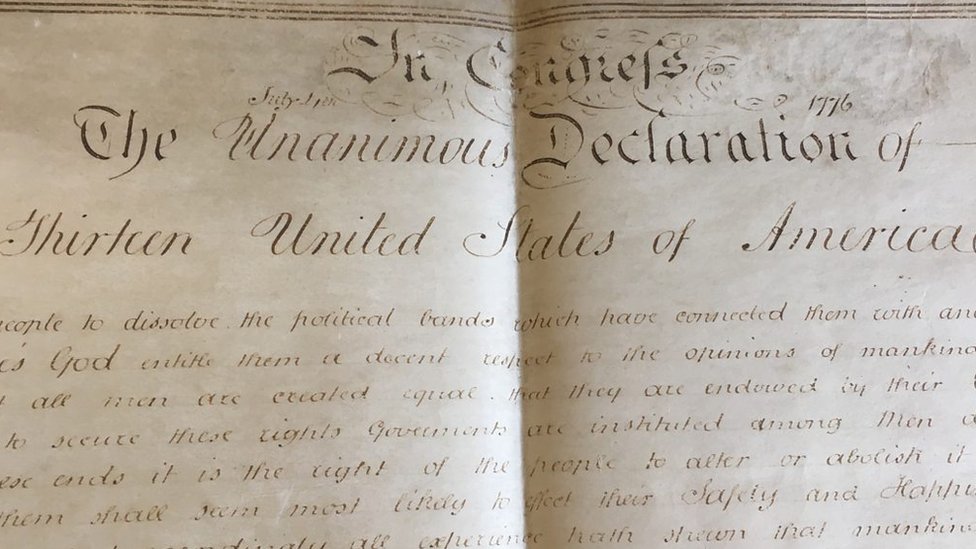 In Congress
July 4th 1776
The Unanimous Declaration of
Thirteen United States of America
people to dissolve the political bands which have connected them with an
's God entitle them a decent respect to the opinions of mankind
all men are created equal that they are endowed by their
to secure these rights Goverments are instituted among Men
ese ends it is the right of the people to alter or abolish it
them shall seem most likely to effect their Safety and Happi
accordingly all experience hath shewn that mankin